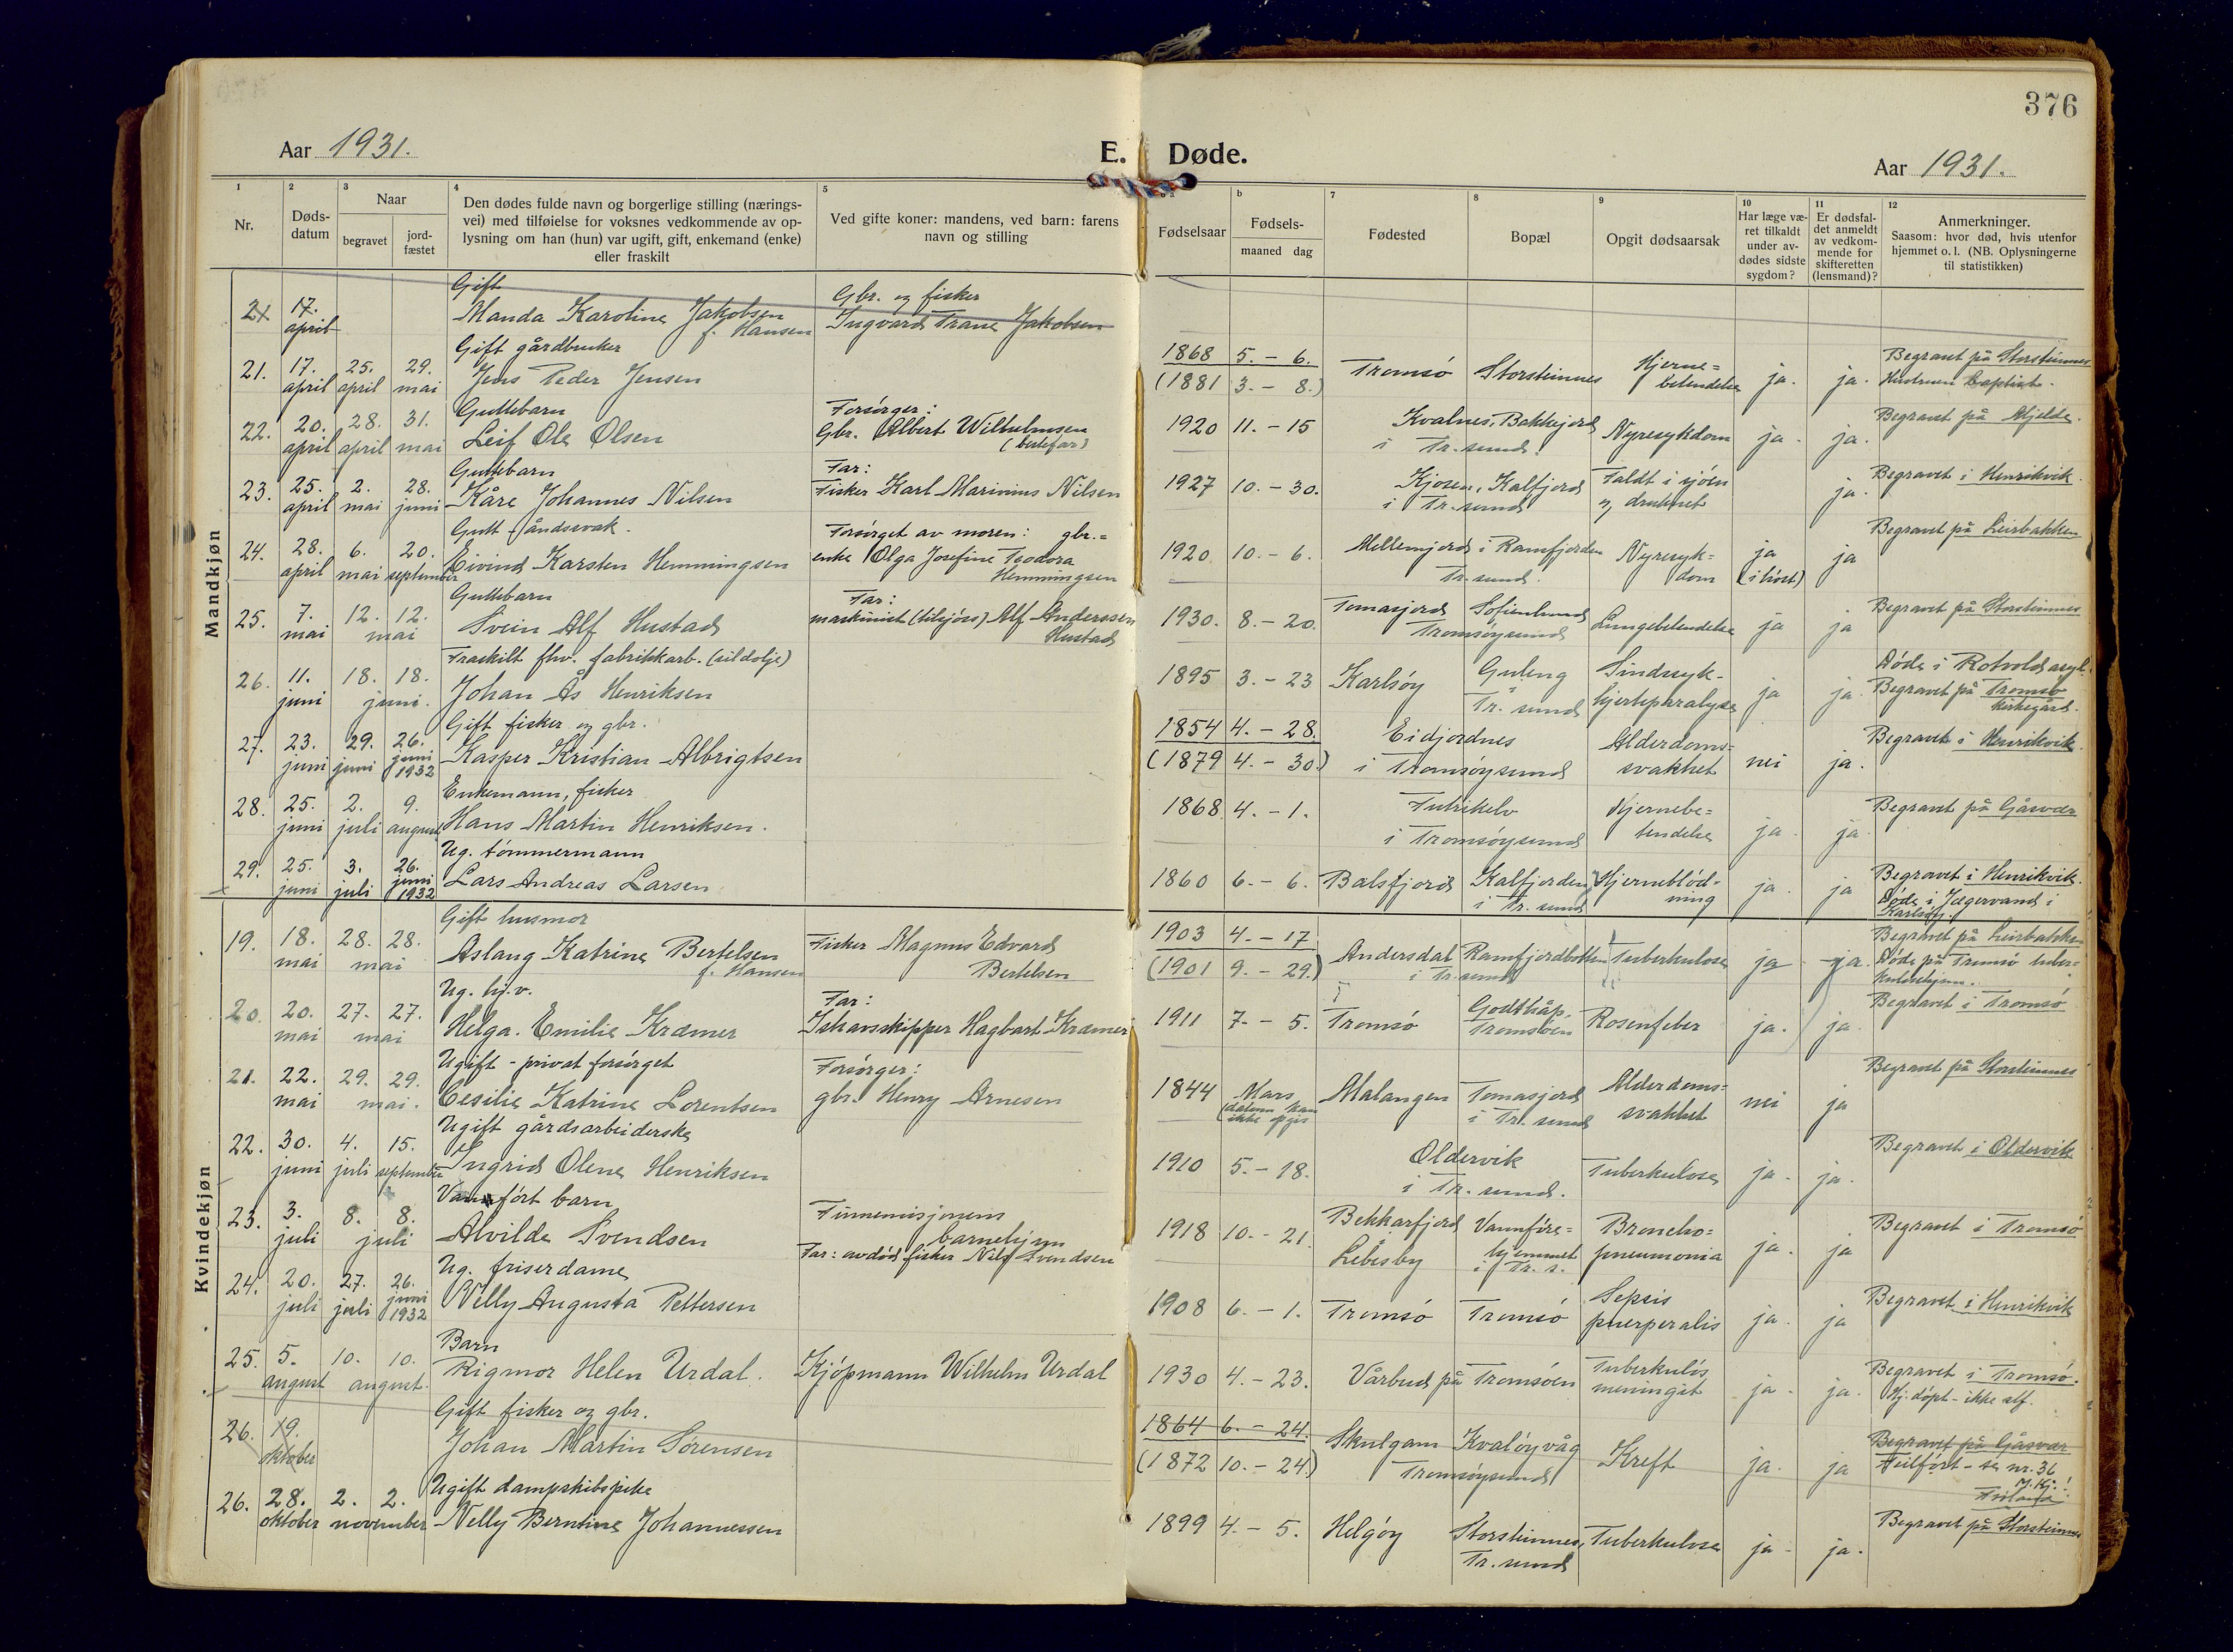 376
Aar 1931.
E. Døde.
Aar 1931.
1 Nr.
2 Døds-datum
3 Naar
begravet
jord-fæstet
4 Den dødes fulde navn og borgerlige stilling (nærings-
vei) med tilføielse for voksnes vedkommende av op-
lysning om han (hun) var ugift, gift, enkemand (enke)
eller fraskilt
5 Ved gifte koner: mandens, ved barn: farens
navn og stilling
Fødselsaar
b Fødsels-
maaned dag
7 Fødested
8 Bopæl
9 Opgit dødsaarsak
10 Har læge væ-
ret tilkaldt
under av-
dødes sidste
sygdom?
11 Er dødsfal-
det anmeldt
av vedkom-
mende for
skifteretten
(lensmand)?
12 Anmerkninger.
Saasom: hvor død, hvis utenfor
hjemmet o. l. (NB. Oplysningerne
til statistikken)
Mandkjøn
Gift Gbr. og fisker
21 17. april Manda Karoline Jakobsen f. Hansen Ingvard Trane Jakobsen
Gift gårdbruker
21. 17. april 25. april 29. mai Jens Peder Jensen 1868 5. - 6. (1881 3. - 8.) Tromsö Storsteinnes Hjerne=betendelse ja. ja. Begravet på Storsteinnes Hustruen baptist.
Guttebarn Forsörger:
22. 20. april 28. april 31. mai Leif Ole Olsen Gbr. Albert Wilhelmsen 1920 11. - 15 Kvalnes, Bakkejord i Tr.sund. Nyresykdom ja. ja. Begravet på Mjelde.
Guttebarn Far:
23. 25. april 2. mai 28. juni Kåre Johannes Nilsen Fisker Karl Marinius Nilsen 1927 10. - 30. Kjosen, Kalfjord i Tr.sund Faldt i sjöen og druknet ja. Begravet i Henrikvik.
Gutt - åndssvak. Forsörget av moren: gbr.=
24. 28. april 6. mai 20. september Eivind Karsten Hemmingsen enke Olga Josefine Teodora Hemmingsen 1920 10. - 6. Mellemjord i Ramfjorden Tr.sund. Nyresyk=dom ja (i höst) ja Begravet på Leirbakken
Guttebarn Far:
25. 7. mai 12. 12. mai Svein Alf Hustad maskinist (tilsjös) Alf Anderssen Hustad 1930. 8. - 20. Tomasjord Sofienlund Tromsöysund Lungebetendelse ja ja Begravet på Storsteinnes
Fraskilt fhv. fabrikkarb. (sildolje)
26. 11. juni 18. 18. juni. Johan Ås Henriksen 1895 3. - 23 Karlsöy Guleng Tr. sund Sindssyk- hjerteparalyse ja ja. Döde i Rotvold asyl. Begravet på Tromsö kirkegård.
Gift fisker og gbr.
27. 23. juni 29. juni 26. juni 1932 Kasper Kristian Albrigtsen 1854 4. - 28. (1879 4. - 30.) Eidjordnes i Tromsöysund Alderdoms=svakhet nei ja. Begravet i Henrikvik.
Enkemann, fisker
28. 25. juni 2. juli 9. august Hans Martin Henriksen. 1868 4. - 1. Futrikelv i Tromsöysund Hjernebe=tendelse ja. ja. Begravet på Gåsvær
Ug. tömmermann
29. 25. juni 3. juli 26. juni 1932 Lars Andreas Larsen 1860 6. - 6. Balsfjord Kalfjorden i Tr. sund Hjerneblöd-ning ja. ja Begravet i Henrikvik. Döde i Jægervand i Karlsöy.
Kvindekjøn
Gift husmor
19. 18. mai 28. 28. mai Aslaug Katrine Bertelsen f. Hansen Fisker Magnus Edvard Bertelsen 1903 4. - 17 (1901 9. - 29.) Andersdal Ramfjordbotten i Tr.sund Tuberkulose ja ja. Begravet på Leirbakken Döde på Tromsö tuber=kulosehjem.
Ug. hj.v. Far:
20. 20. mai 27. 27. mai Helga Emilie Kræmer Ishavsskipper Hagbart Kræmer 1911 7. - 5. Tromsö Godthåp, Tromsöen Rosenfeber ja. ja. Begravet i Tromsö
Ugift - privat forsörget Forsörger:
21. 22. mai 29. 29. mai. Cesilie Katrine Lorentsen gbr. Henry Arnesen 1844 Mars (datum kan ikke opgis Malangen Tomasjord i Tr. sund Alderdoms=svakhet nei ja Begravet på Storsteinnes
Ugift gårdsarbeiderske
22. 30. juni 4. juli 15. september Ingrid Olene Henriksen 1910 5. - 18. Oldervik i Tr. sund. Tuberkulose ja. ja. Begravet i Oldervik
Vanfört barn Finnemisjonens barnehjem
23. 3. juli 8. 8. juli Alvilde Svendsen Far: avdöd fisker Nils Svendsen 1918 10. - 21. Bekkarfjord Lebesby Vannföre=hjemmet i Tr. s. Broncho=pneumonia ja. ja Begravet i Tromsö
Ug. friserdame
24. 20. juli 27. juli 26. juni 1932 Nelly Augusta Pettersen 1908 6. - 1. Tromsö Tromsö Sepsis puerperalis ja. ja Begravet i Henrikvik
Barn
25. 5. august 10. 10. august. Rigmor Helen Urdal. Kjöpmann Wilhelm Urdal 1930 4. - 23. Vårbud på Tromsöen Tuberkulös meningit ja. ja. Begravet i Tromsö. Hj. döpt - ikke stf.
Gift fisker og gbr.
26. 19. oktober Johan Martin Sörensen 1864 6. - 24. (1872 10. - 24.) Skulgam Kvalöyvåg Tromsöysund Kreft ja. ja Begravet på Gåsvær Feilfört - se nr. 36 M.Kj.!
Ugift dampskibspike
26. 28. oktober 2. 2. november Nelly Berntine Johannessen 1899 4. - 5. Helgöy Storsteinnes, Tr. sund Tuberkulose ja. ja. Begravet på Storsteinnes